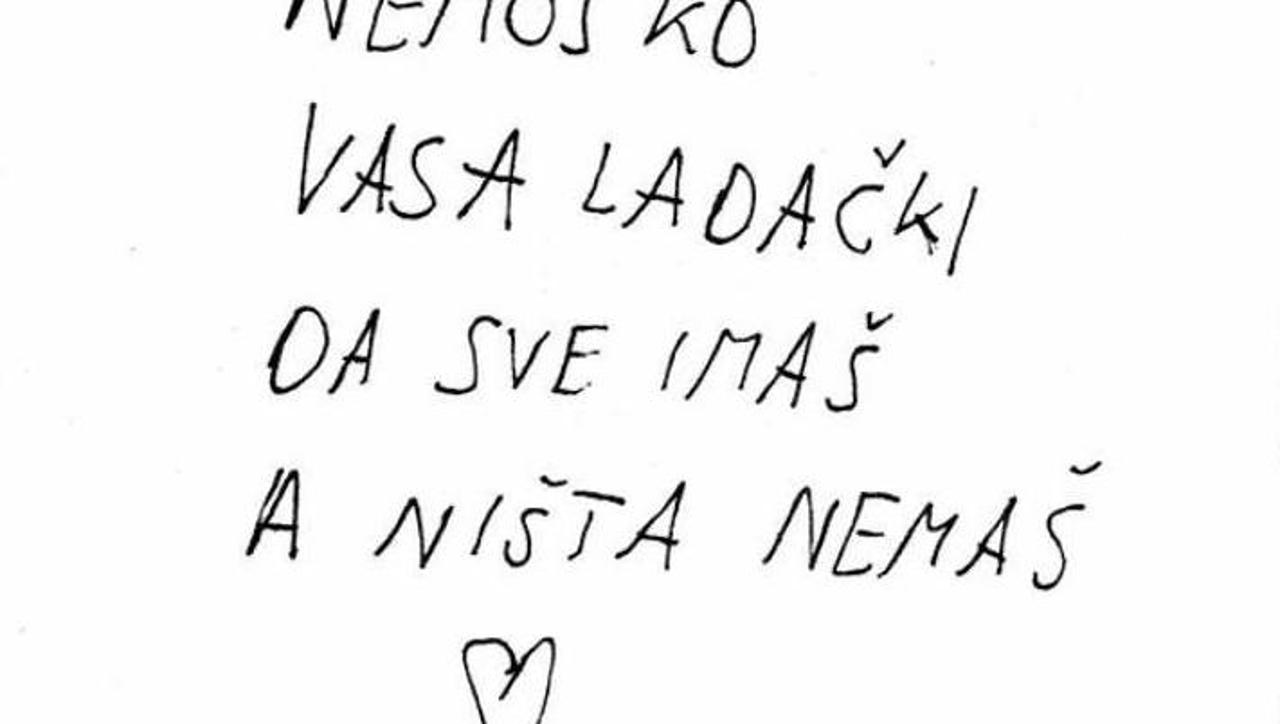 NEMOJ KO
VASA LADAČKI
DA SVE IMAŠ
A NIŠTA NEMAŠ